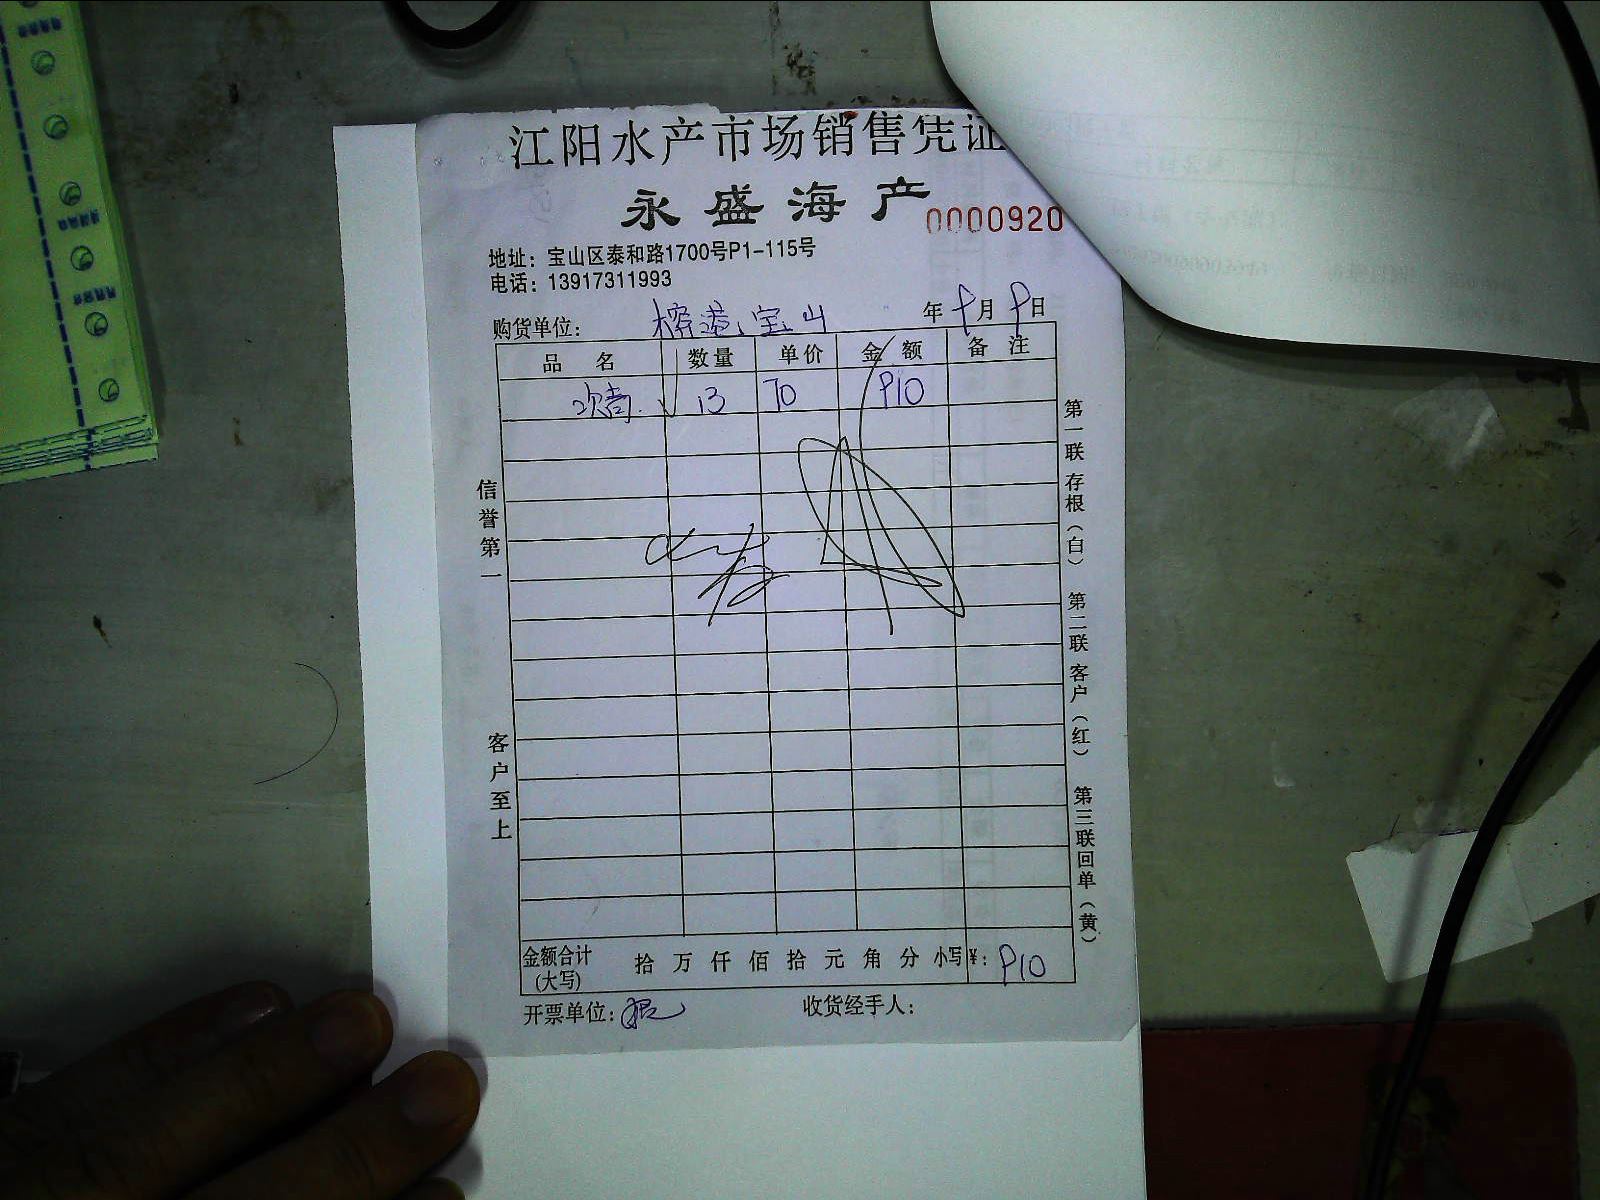 江阳水产市场销售凭证
永盛海产
0000920
地址：宝山区泰和路1700号P1-115号
电话：13917311993
购货单位： 宝山 年9月9日
品名 数量 单价 金额 备注
13 70 910
信誉第一
客户至上
第一联存根（白） 第二联客户（红） 第三联回单（黄）
金额合计(大写) 拾 万 仟 佰 拾 元 角 分 小写¥：910
开票单位：
收货经手人：